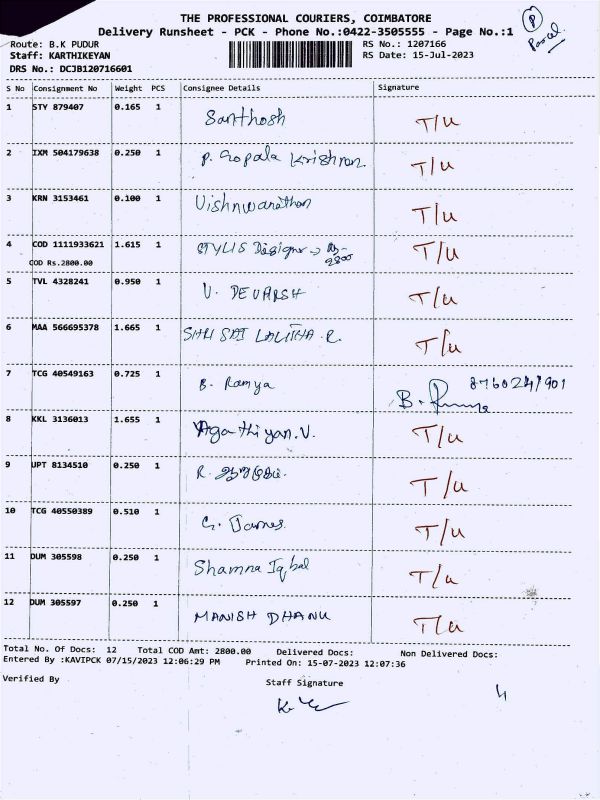 THE PROFESSIONAL COURIERS, COIMBATORE
Delivery Runsheet - PCK - Phone No.:0422-3505555 - Page No.:1
P
Route: B.K PUDUR RS No.: 1207166
Staff: KARTHIKEYAN RS Date: 15-Jul-2023
DRS No.: DCJB120716601
S No Consignment No Weight PCS Consignee Details Signature
1 STY 879407 0.165 1 Santhosh T/U
2 IXM 504179638 0.250 1 P. Gopala Krishnan T/U
3 KRN 3153461 0.100 1 Vishnwanathan T/U
4 COD 1111933621 1.615 1 STYLIS Designer → Rs- 2800 T/U
COD Rs.2800.00
5 TVL 4328241 0.950 1 V. DEVARSH T/U
6 MAA 566695378 1.665 1 SHRI SAI LALITHA .R. T/U
7 TCG 40549163 0.725 1 B. Ramya B. 8760247901
8 KKL 3136013 1.655 1 Agathiyan.V. T/U
9 UPT 8134510 0.250 1 R. T/U
10 TCG 40550389 0.510 1 G. James T/U
11 DUM 305598 0.250 1 Shamna Iqbal T/U
12 DUM 305597 0.250 1 MANISH DHANU T/U
Total No. Of Docs: 12 Total COD Amt: 2800.00 Delivered Docs: Non Delivered Docs:
Entered By :KAVIPCK 07/15/2023 12:06:29 PM Printed On: 15-07-2023 12:07:36
Verified By Staff Signature